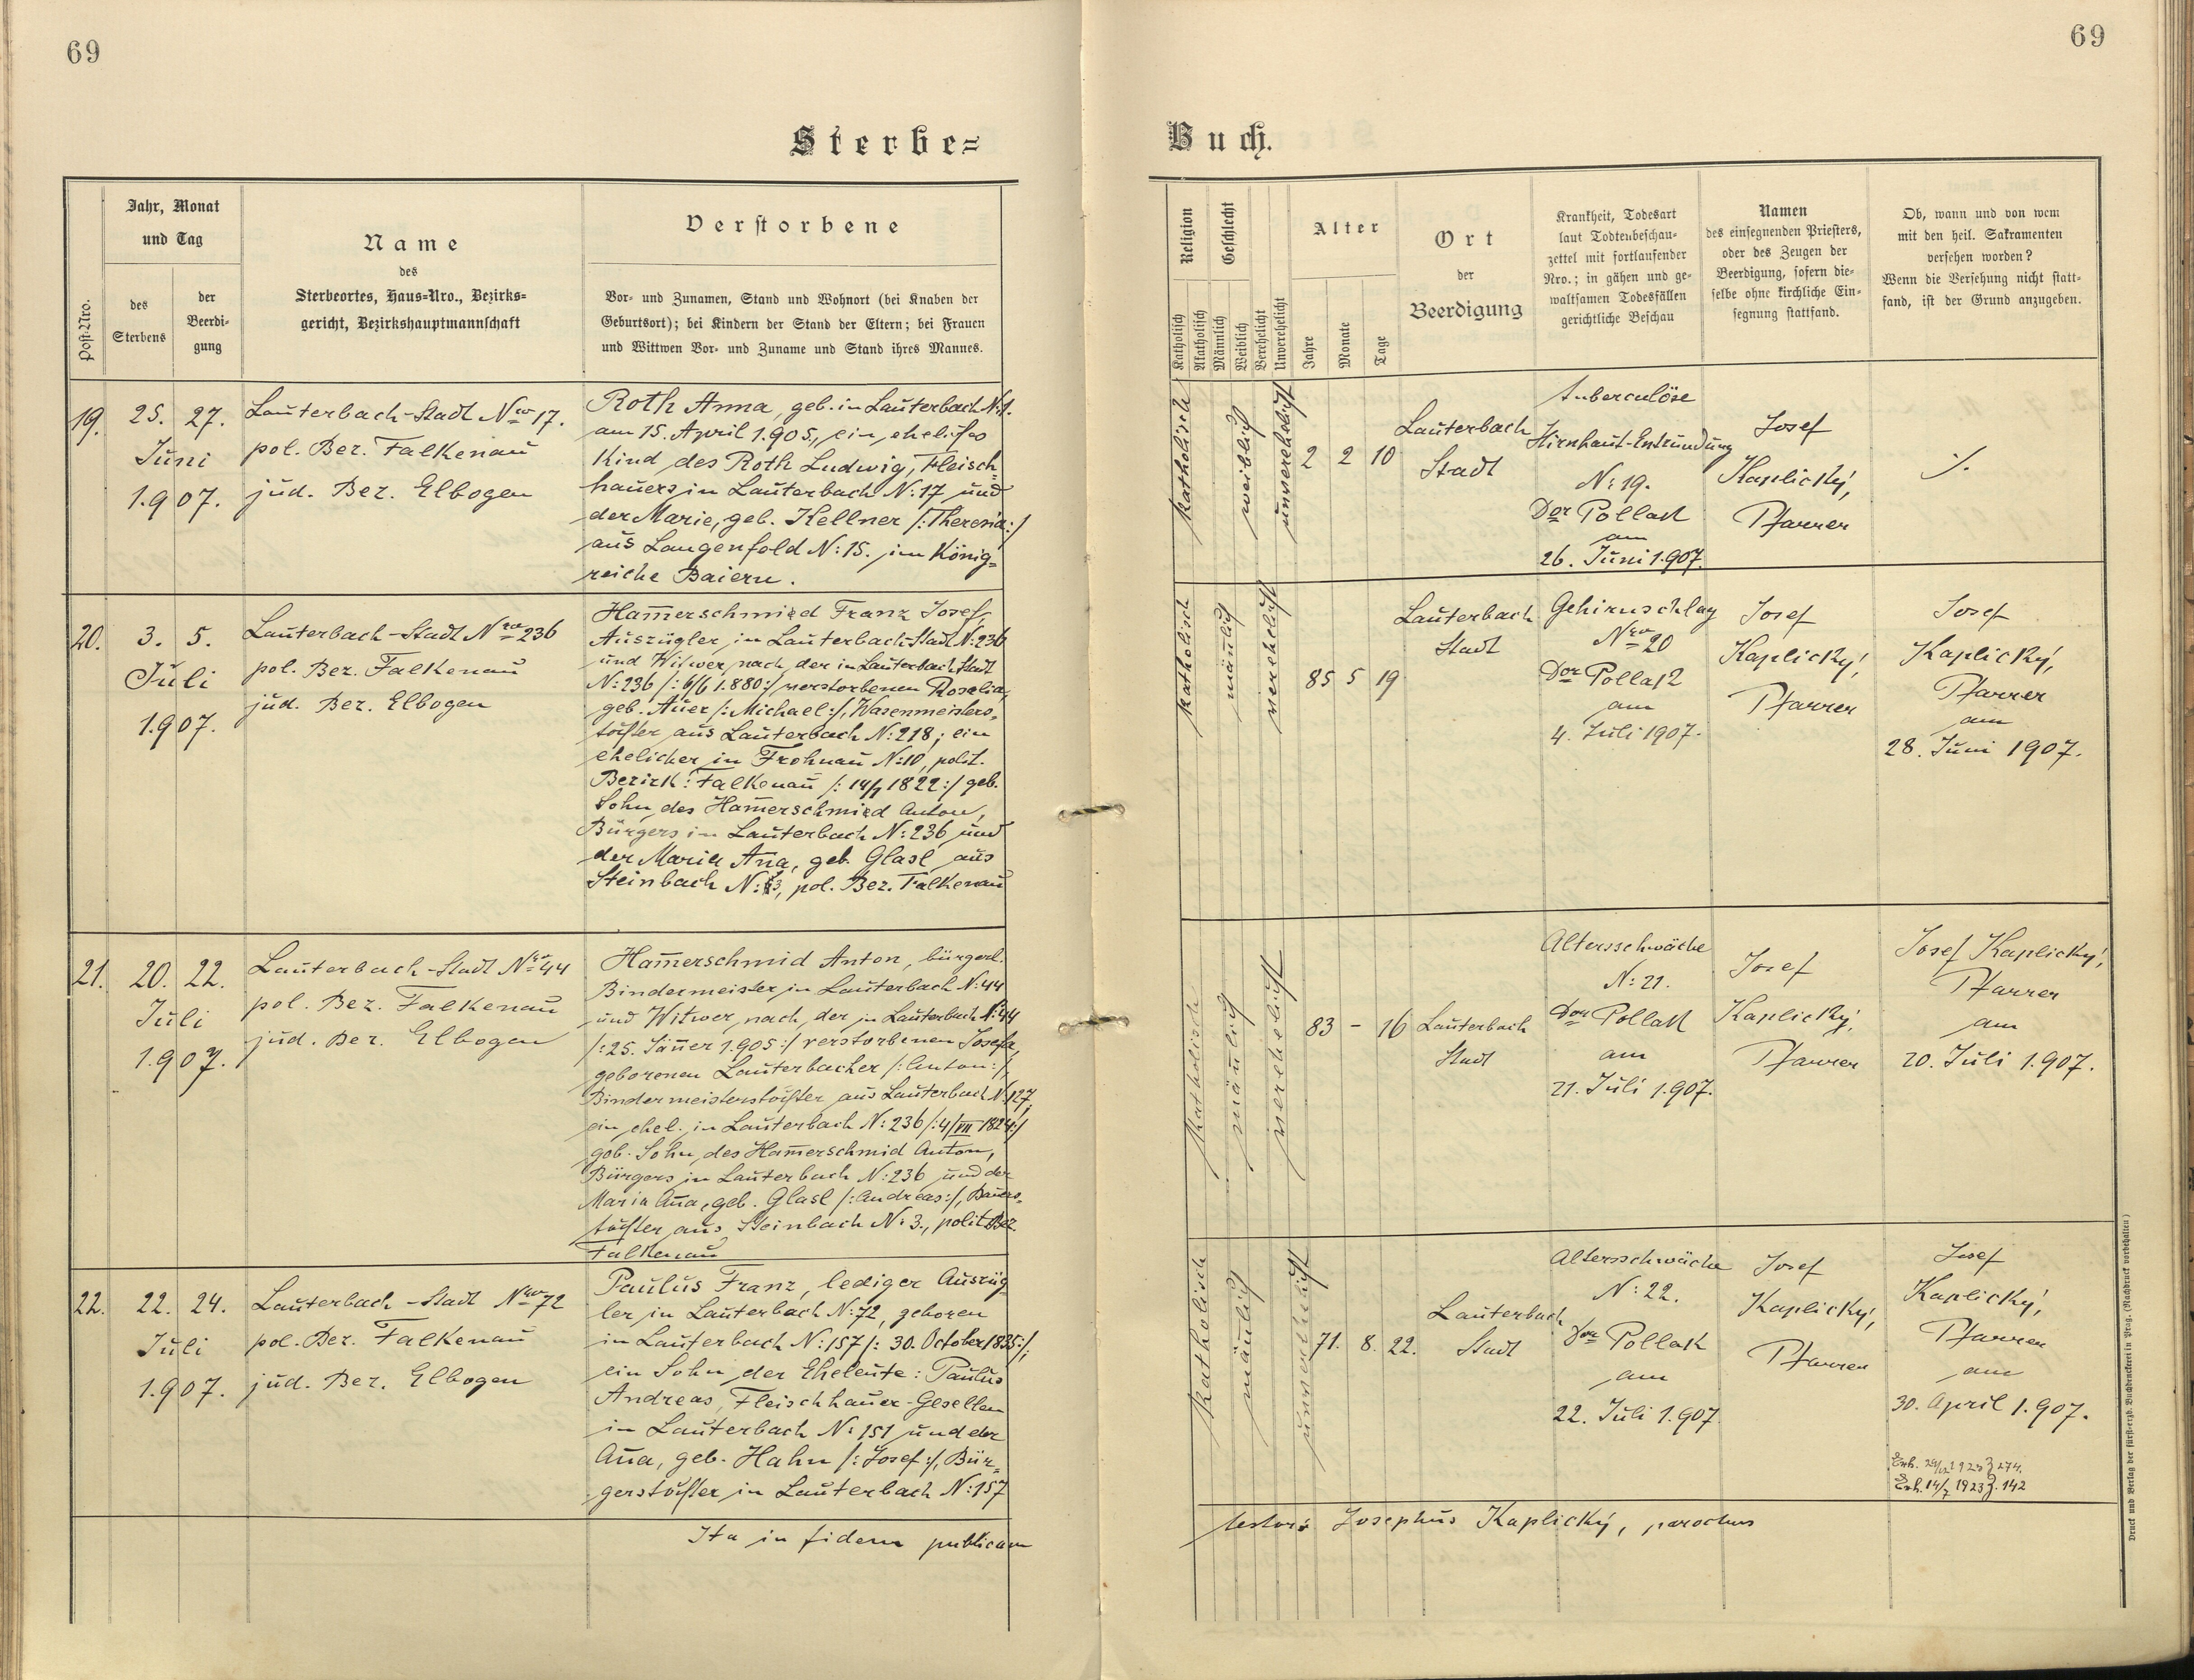 69
69
Sterbe=
Buch.
Post-Nro.
Jahr, Monat
und Tag
des
Sterbens
der
Beerdi-
gung
Name
des
Sterbeortes, Haus-Nro., Bezirks-
gericht, Bezirkshauptmannschaft
Verstorbene
Vor- und Zunamen, Stand und Wohnort (bei Knaben der
Geburtsort); bei Kindern der Stand der Eltern; bei Frauen
und Wittwen Vor- und Zuname und Stand ihres Mannes.
Religion
Katholisch
Akatholisch
Geschlecht
Männlich
Weiblich
Verehelicht
Unverehelicht
Alter
Jahre
Monate
Tage
Ort
der
Beerdigung
Krankheit, Todesart
laut Todtenbeschau-
zettel mit fortlaufender
Nro.; in gähen und ge-
waltsamen Todesfällen
gerichtliche Beschau
Namen
des einsegnenden Priesters,
oder des Zeugen der
Beerdigung, sofern die-
selbe ohne kirchliche Ein-
segnung stattfand.
Ob, wann und von wem
mit den heil. Sakramenten
versehen worden?
Wenn die Versehung nicht statt-
fand, ist der Grund anzugeben.
19.
25. 27.
Juni
1.907.
Lauterbach-Stadt Nro 17.
pol. Bez. Falkenau
jud. Bez. Elbogen
Roth Anna, geb. in Lauterbach
am 15. April 1.905, ein eheliches
Kind des Roth Ludwig, Fleisch-
hauers in Lauterbach N: 17 und
der Marie, geb. Kellner /: Theresia :/
aus Langenfeld N: 15. im König-
reiche Baiern.
katholisch
weiblich
unverehelicht
2 2 10
Lauterbach
Stadt
tuberculöse
Hirnhaut-Entzündung
N: 19.
Dor Pollak
am
26. Juni 1.907.
Josef
Kaplický,
Pfarrer
./.
20.
3. 5.
Juli
1.907.
Lauterbach-Stadt Nro 236
pol. Bez. Falkenau
jud. Bez. Elbogen
Ham̅erschmied Franz Josef,
Auszügler in Lauterbach-Stadt N: 236
und Witwer nach der in Lauterbach Stadt
N: 236 /: 6/6 1.880 :/ verstorbenen Rosalia,
geb. Auer /: Michael :/, Wasenmeisters-
tochter aus Lauterbach N: 218; ein
ehelicher in Frohnau N: 10, polit.
Bezirk: Falkenau /: 14/1 1822 :/ geb.
Sohn des Ham̅erschmied Anton,
Bürgers in Lauterbach N: 236 und
der Maria An̅a, geb. Glasl aus
Steinbach N: 3, pol. Bez. Falkenau
katholisch
män̅lich
verehelicht
85 5 19
Lauterbach
Stadt
Gehirnschlag
Nro 20
Dor Pollak
am
4. Juli 1907.
Josef
Kaplický,
Pfarrer
Josef
Kaplický,
Pfarrer
am
28. Juni 1907.
21.
20. 22.
Juli
1.907.
Lauterbach-Stadt Nro 44
pol. Bez. Falkenau
jud. Bez. Elbogen
Ham̅erschmid Anton, bürgerl.
Bindermeister in Lauterbach N: 44
und Witwer nach der in Lauterbach N: 44
/: 25. Jän̅er 1.905 :/ verstorbenen Josefa,
geborenen Lauterbacher /: Anton :/,
Bindermeisterstochter aus Lauterbach N: 127,
ein ehel. in Lauterbach N: 236 /: 4/VII 1824 :/
geb. Sohn des Ham̅erschmid Anton,
Bürgers in Lauterbach N: 236 und der
Maria An̅a, geb. Glasl /: Andreas :/, Bauers-
tochter aus Steinbach N: 3., polit. Bez.
Falkenau
katholisch
män̅lich
verehelicht
83 - 16
Lauterbach
Stadt
Altersschwäche
N: 21.
Dor Pollak
am
21. Juli 1.907.
Josef
Kaplický,
Pfarrer
Josef Kaplický,
Pfarrer
am
20. Juli 1.907.
22.
22. 24.
Juli
1.907.
Lauterbach-Stadt Nro 72
pol. Bez. Falkenau
jud. Bez. Elbogen
Paulus Franz, lediger Auszüg-
ler in Lauterbach N: 72, geboren
in Lauterbach N: 157 /: 30. October 1835 :/;
ein Sohn der Eheleute: Paulus
Andreas, Fleischhauer-Gesellen
in Lauterbach N: 151 und der
An̅a, geb. Hahn /: Josef :/, Bür-
gerstochter in Lauterbach N: 157
katholisch
män̅lich
unverehelicht
71. 8. 22.
Lauterbach
Stadt
Altersschwäche
N: 22.
Dor Pollak
am
22. Juli 1.907
Josef
Kaplický,
Pfarrer
Josef
Kaplický,
Pfarrer
am
30. April 1.907.
Erh. 1923 Z. 274.
Erh. 14/7 1923 Z. 142
Ita in fidem publicam
testor: Josephus Kaplický, parochus
Druck und Verlag der fürsterzb. Buchdruckerei in Prag. (Nachdruck vorbehalten)